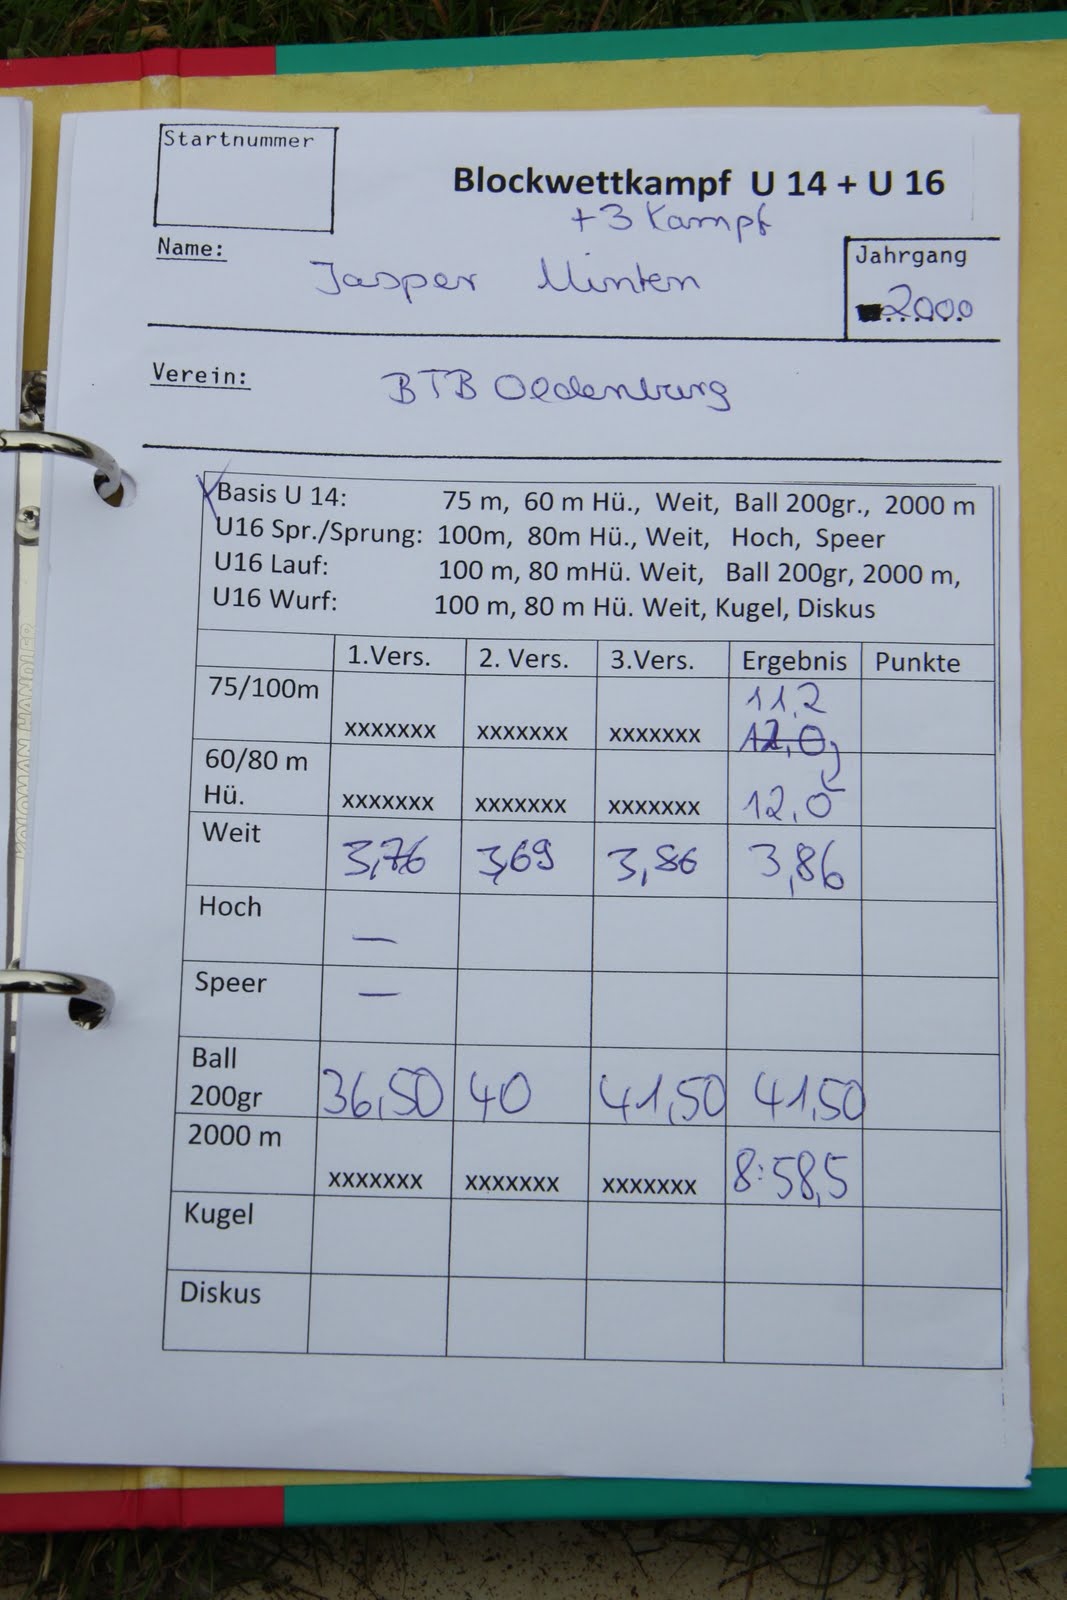 Startnummer
Blockwettkampf U 14 + U 16
+3 Kampf
Name:
Jasper Minten
Jahrgang
2000
Verein:
BTB Oldenburg
Basis U 14: 75 m, 60 m Hü., Weit, Ball 200gr., 2000 m
U16 Spr./Sprung: 100m, 80m Hü., Weit, Hoch, Speer
U16 Lauf: 100 m, 80 mHü. Weit, Ball 200gr, 2000 m,
U16 Wurf: 100 m, 80 m Hü. Weit, Kugel, Diskus
1.Vers. 2. Vers. 3.Vers. Ergebnis Punkte
75/100m 11,2
xxxxxxx xxxxxxx xxxxxxx 12,0
60/80 m
Hü. xxxxxxx xxxxxxx xxxxxxx 12,0
Weit 3,76 3,69 3,86 3,86
Hoch —
Speer —
Ball
200gr 36,50 40 41,50 41,50
2000 m xxxxxxx xxxxxxx xxxxxxx 8:58,5
Kugel
Diskus